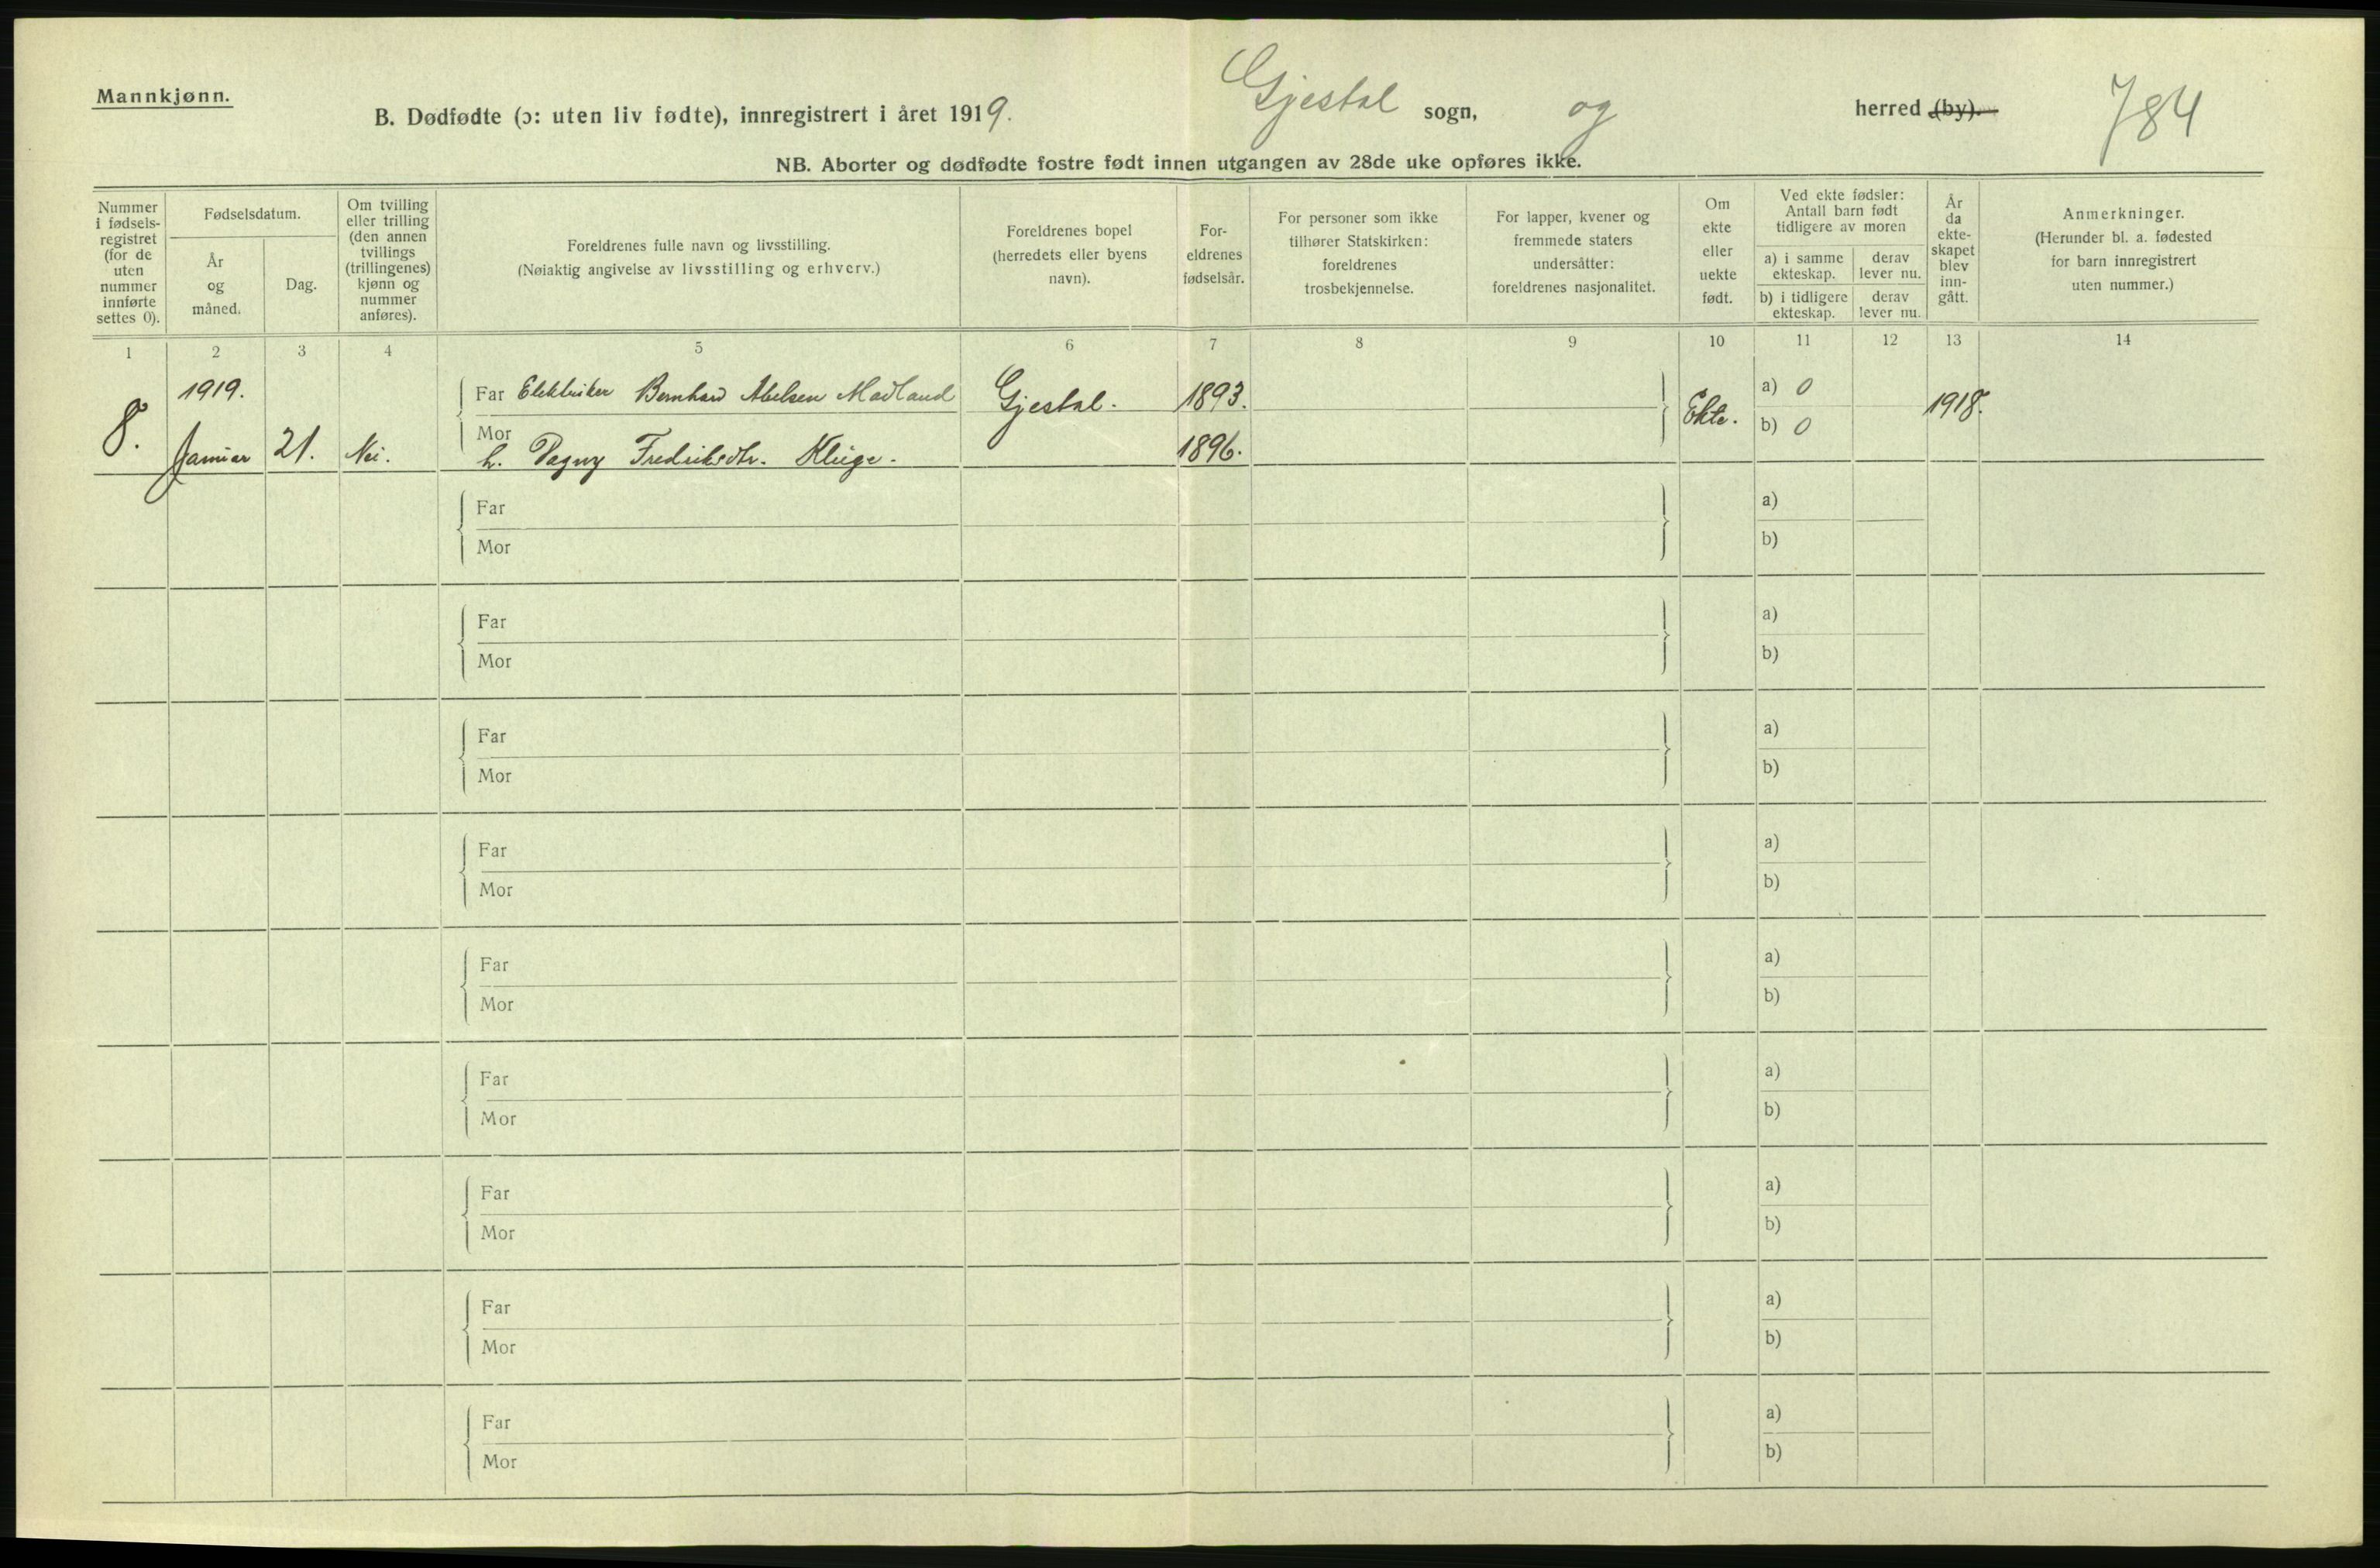 Mannkjønn.
B. Dødfødte (ɔ: uten liv fødte), innregistrert i året 1919. Gjestal sogn, og herred (by). 784
NB. Aborter og dødfødte fostre født innen utgangen av 28de uke opføres ikke.
Nummer
i fødsels-
registret
(for de
uten
nummer
innførte
settes 0).
Fødselsdatum.
År
og
måned.
Dag.
Om tvilling
eller trilling
(den annen
tvillings
(trillingenes)
kjønn og
nummer
anføres).
Foreldrenes fulle navn og livsstilling.
(Nøiaktig angivelse av livsstilling og erhverv.)
Foreldrenes bopel
(herredets eller byens
navn).
For-
eldrenes
fødselsår.
For personer som ikke
tilhører Statskirken:
foreldrenes
trosbekjennelse.
For lapper, kvener og
fremmede staters
undersåtter:
foreldrenes nasjonalitet.
Om
ekte
eller
uekte
født.
Ved ekte fødsler:
Antall barn født
tidligere av moren
a) i samme
ekteskap.
derav
lever nu.
b) i tidligere
ekteskap.
derav
lever nu.
År
da
ekte-
skapet
blev
inn-
gått.
Anmerkninger.
(Herunder bl. a. fødested
for barn innregistrert
uten nummer.)
1 2 3 4 5 6 7 8 9 10 11 12 13 14
8. 1919. Januar 21. Nei.
Far Elektriker Bernhard Abelsen Madland Gjestal. 1893.
Mor h. Dagny Fredriksdtr. Kluge. 1896.
Ekte. a) 0
b) 0
1918.
Far a)
Mor b)
Far a)
Mor b)
Far a)
Mor b)
Far a)
Mor b)
Far a)
Mor b)
Far a)
Mor b)
Far a)
Mor b)
Far a)
Mor b)
Far a)
Mor b)